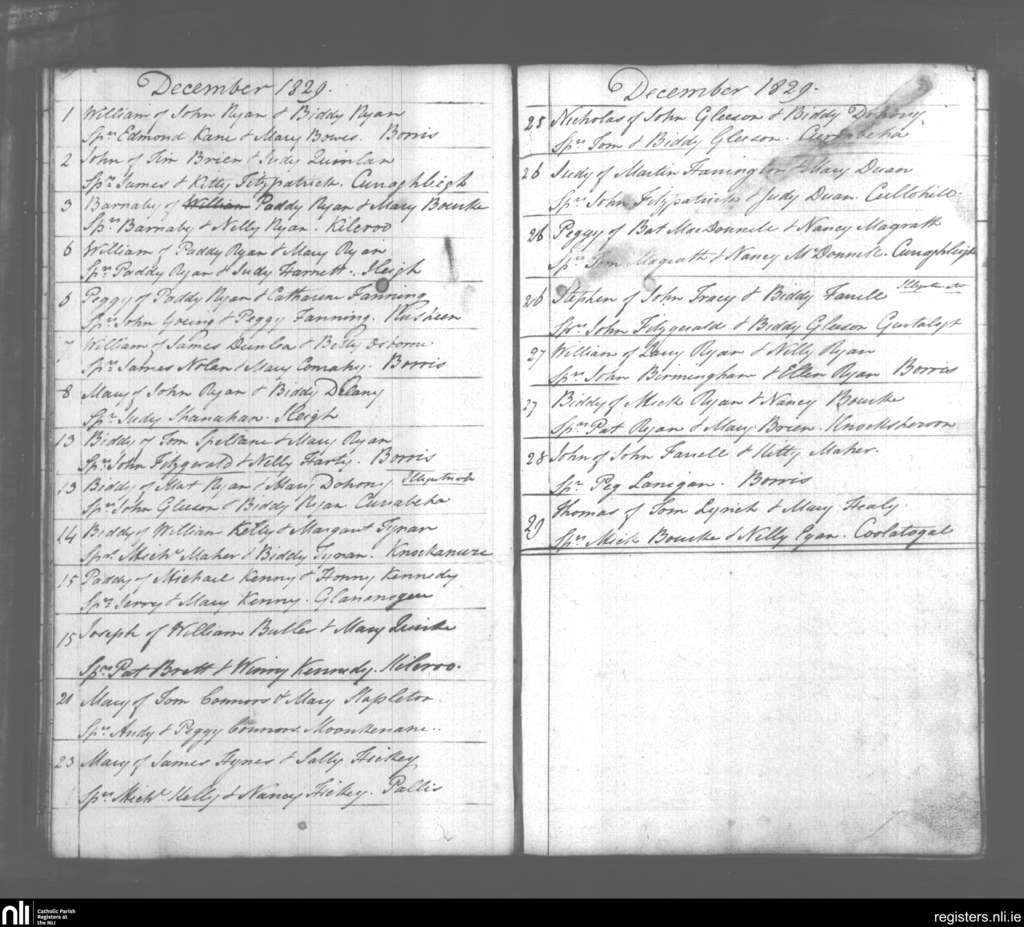 December 1829.
1 William of John Ryan & Biddy Ryan
Sprs Edmond Kane & Mary Bowes. Borris
2 John of Tim Brien & Judy Quinlan
Sprs James & Kitty Fitzpatrick. Curraghleigh
3 Barnaby of William Paddy Ryan & Mary Bourke
Sprs Barnaby & Nelly Ryan. Kilcroo
6 William of Paddy Ryan & Mary Ryan
Sprs Paddy Ryan & Judy Harnett. Fleigh
6 Peggy of Paddy Ryan & Catharine Fanning
Sprs John Young & Peggy Fanning.
7 William of James Dunlea & Betty Osborne
Sprs James Nolan & Mary Borris
8 Mary of John Ryan & Biddy Delany
Spr Judy Shanahan. Fleigh
13 Biddy of Tom Spellane & Mary Ryan
Sprs John Fitzgerald & Nelly Harty. Borris
13 Biddy of Mat Ryan & Mary Dohony Illegitimate
Sprs John Gleeson & Biddy Ryan. Currabeha
14 Biddy of William Kelly & Margaret Tynan
Sprs Michl Maher & Biddy Tynan. Knockanure
15 Paddy of Michael Kenny & Honny Kennedy
Sprs Jerry & Mary Kenny.
15 Joseph of William Butler & Mary Quirke
Sprs Pat Brett & Winny Kennedy. Kilcroo.
21 Mary of Tom Connors & Mary Stapleton.
Sprs Andy & Peggy Connors.
23 Mary of James Hynes & Sally Hickey
Sprs Michl Kelly & Nancy Hickey. Pallis
December 1829.
25 Nicholas of John Gleeson & Biddy Dohony
Sprs Tom & Biddy Gleeson. Currabeha
26 Judy of Martin Harrington & Mary Dwan
Sprs John Fitzpatrick & Judy Dwan. Cullohill
26 Peggy of Bat MacDonnell & Nancy Magrath
Sprs Tom Magrath & Nancy McDonnell. Curraghleigh
26 Stephen of John Tracy & Biddy Farrell Illegitimate
Sprs John Fitzgerald & Biddy Gleeson
27 William of Larry Ryan & Nelly Ryan
Sprs John Birmingham & Ellen Ryan Borris
27 Biddy of Mick Ryan & Nancy Bourke
Sprs Pat Ryan & Mary Brien.
28 John of John Farrell & Kitty Maher.
Spr Peg Lanigan. Borris
29 Thomas of Tom Lynch & Mary Healy
Sprs Mick Bourke & Nelly Egan. Coolatogal
nli Catholic Parish
Registers at
the NLI
registers.nli.ie